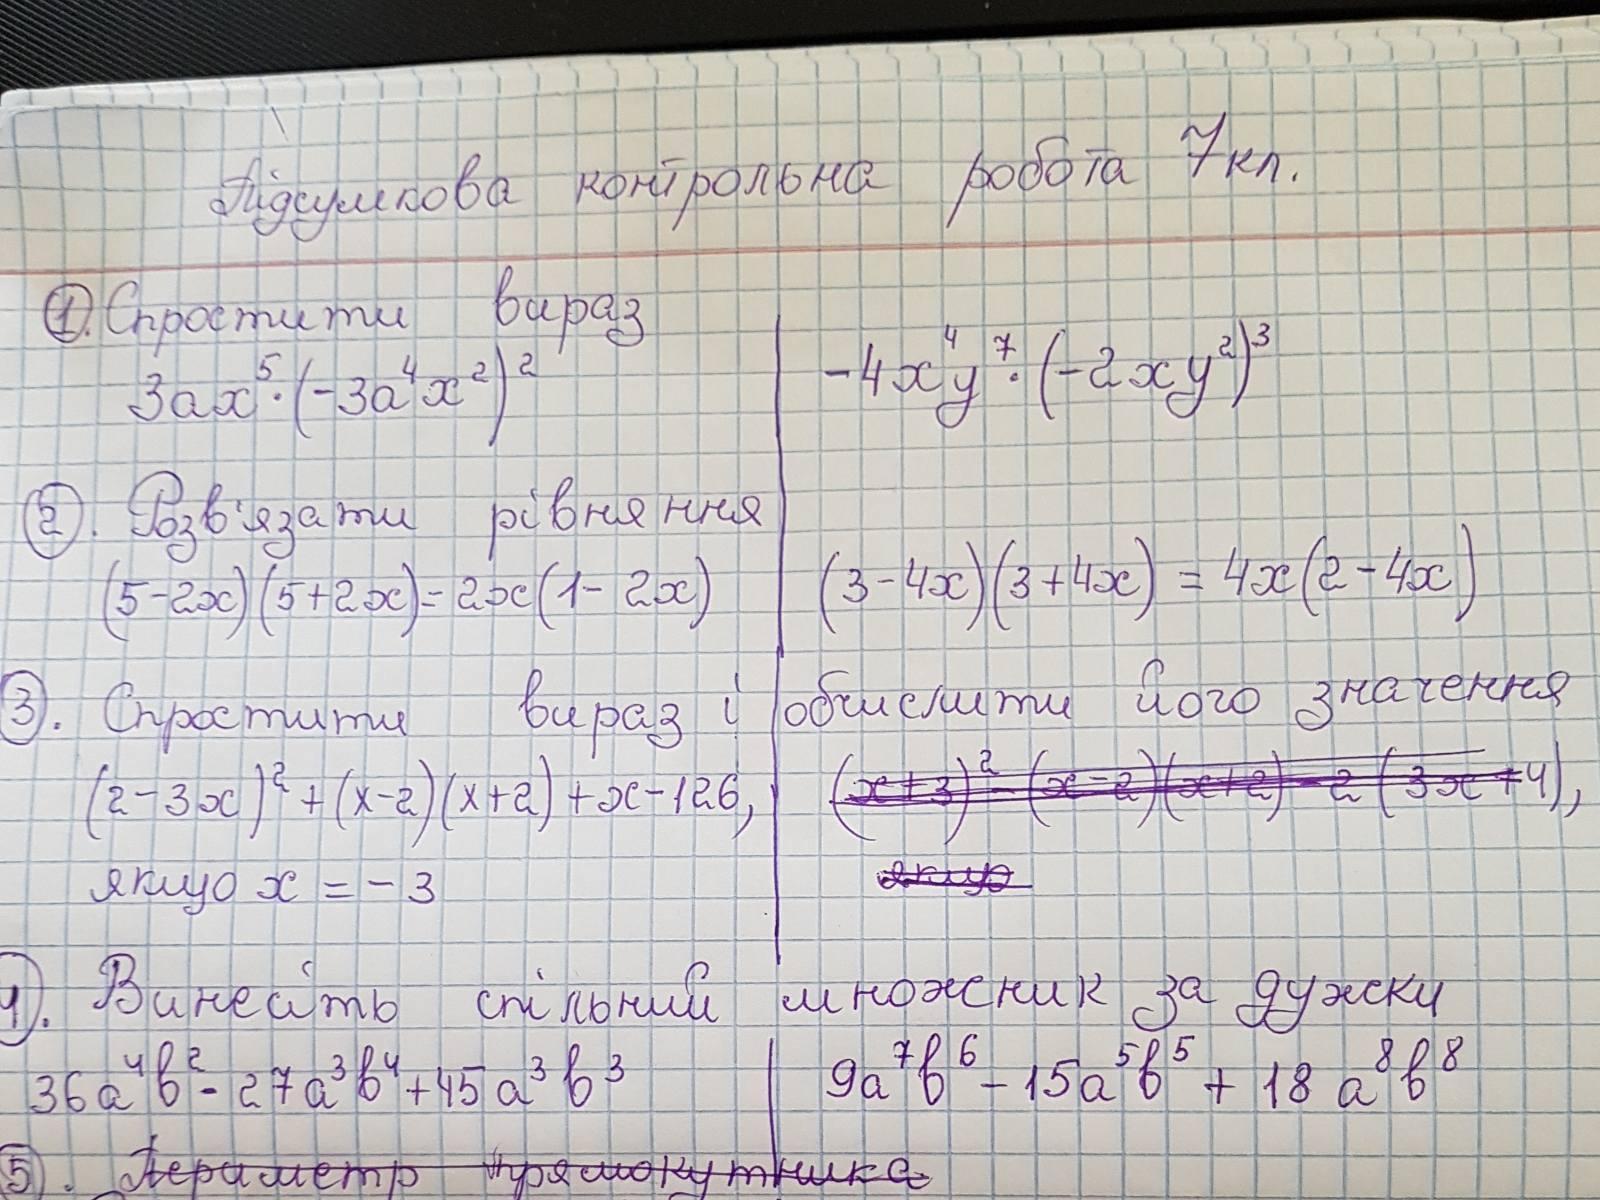 Підсумкова контрольна робота 7 кл.
1. Спростити вираз
3ax⁵·(-3a⁴x²)²
-4x⁴y⁷·(-2xy²)³
2. Розв'язати рівняння
(5-2x)(5+2x)=2x(1-2x)
(3-4x)(3+4x)=4x(2-4x)
3. Спростити вираз і обчислити його значення
(2-3x)²+(x-2)(x+2)+x-126,
(x+3)²-(x-2)(x+2)-2(3x+4),
якщо x=-3
якщо
4. Винесіть спільний множник за дужки
36a⁴b²-27a³b⁴+45a³b³
9a⁷b⁶-15a⁵b⁵+18a⁸b⁸
5. Периметр прямокутника